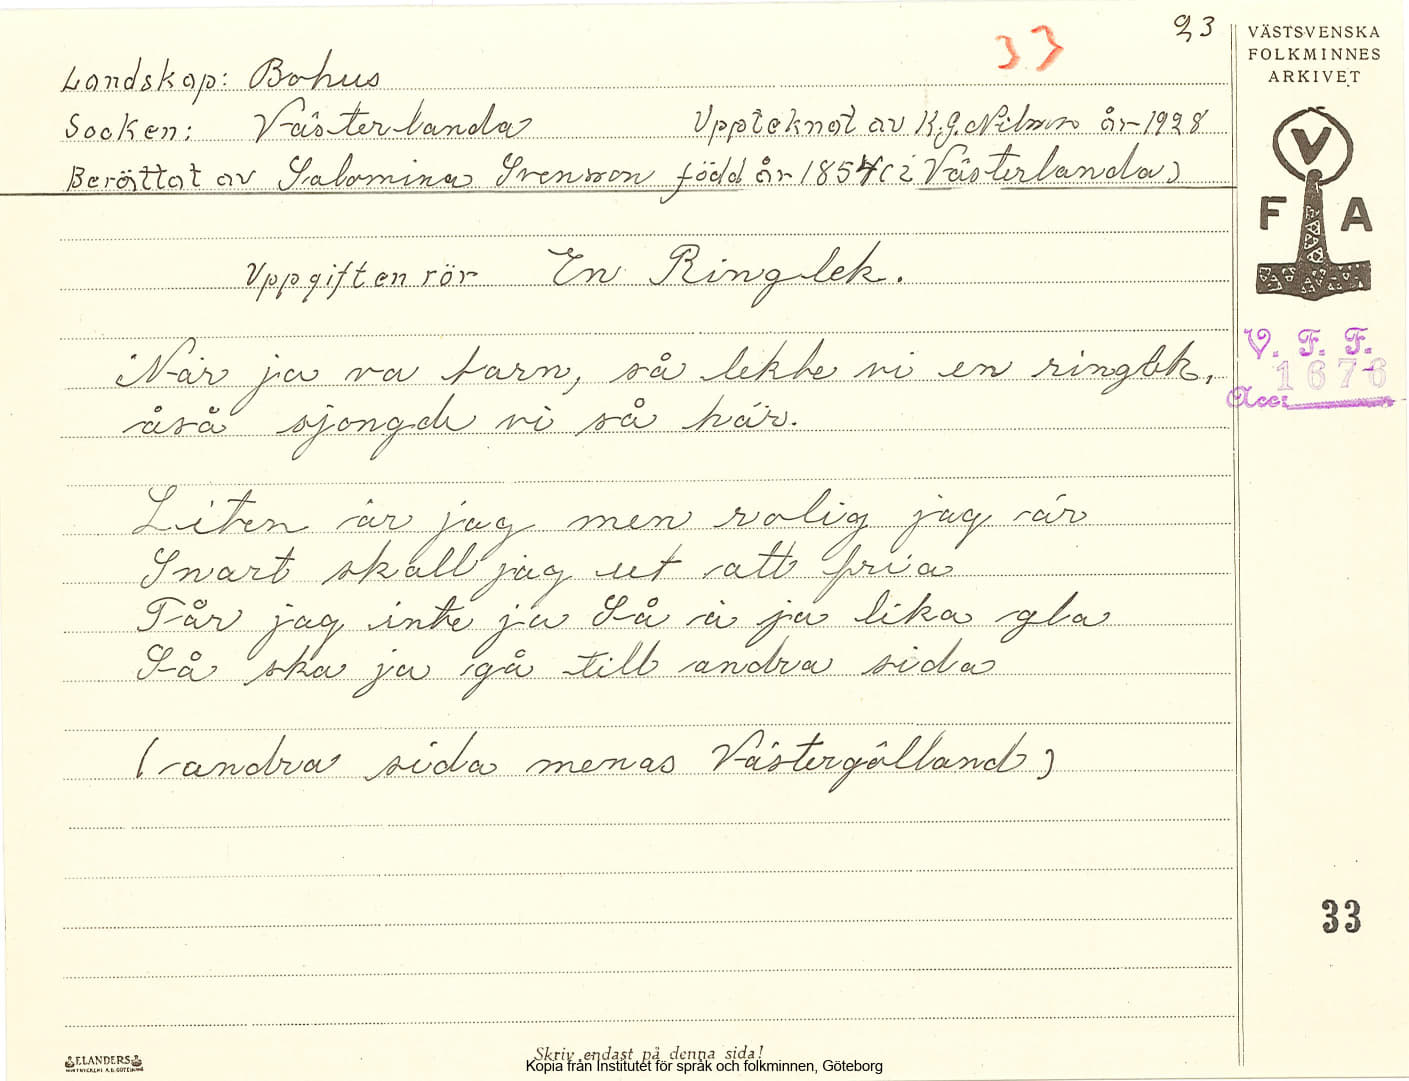 23
33
VÄSTSVENSKA
FOLKMINNES
ARKIVET
Landskap: Bohus
Socken: Västerlanda Upptecknat av K.G. Nilsson år 1928
Berättat av Salomina Svensson född år 1854 (i Västerlanda)
V
F A
Uppgiften rör En Ringlek.
V. F. F.
1676
Acc:
När ja va barn, så lekte vi en ringlek,
åså sjongde vi så här.
Liten är jag men rolig jag är
Snart skall jag ut att fria
Får jag inte ja Så ä ja lika gla
Så ska ja gå till andra sida
(andra sida menas Västergötland)
33
ELANDERS
Skriv endast på denna sida!
Kopia från Institutet för språk och folkminnen, Göteborg